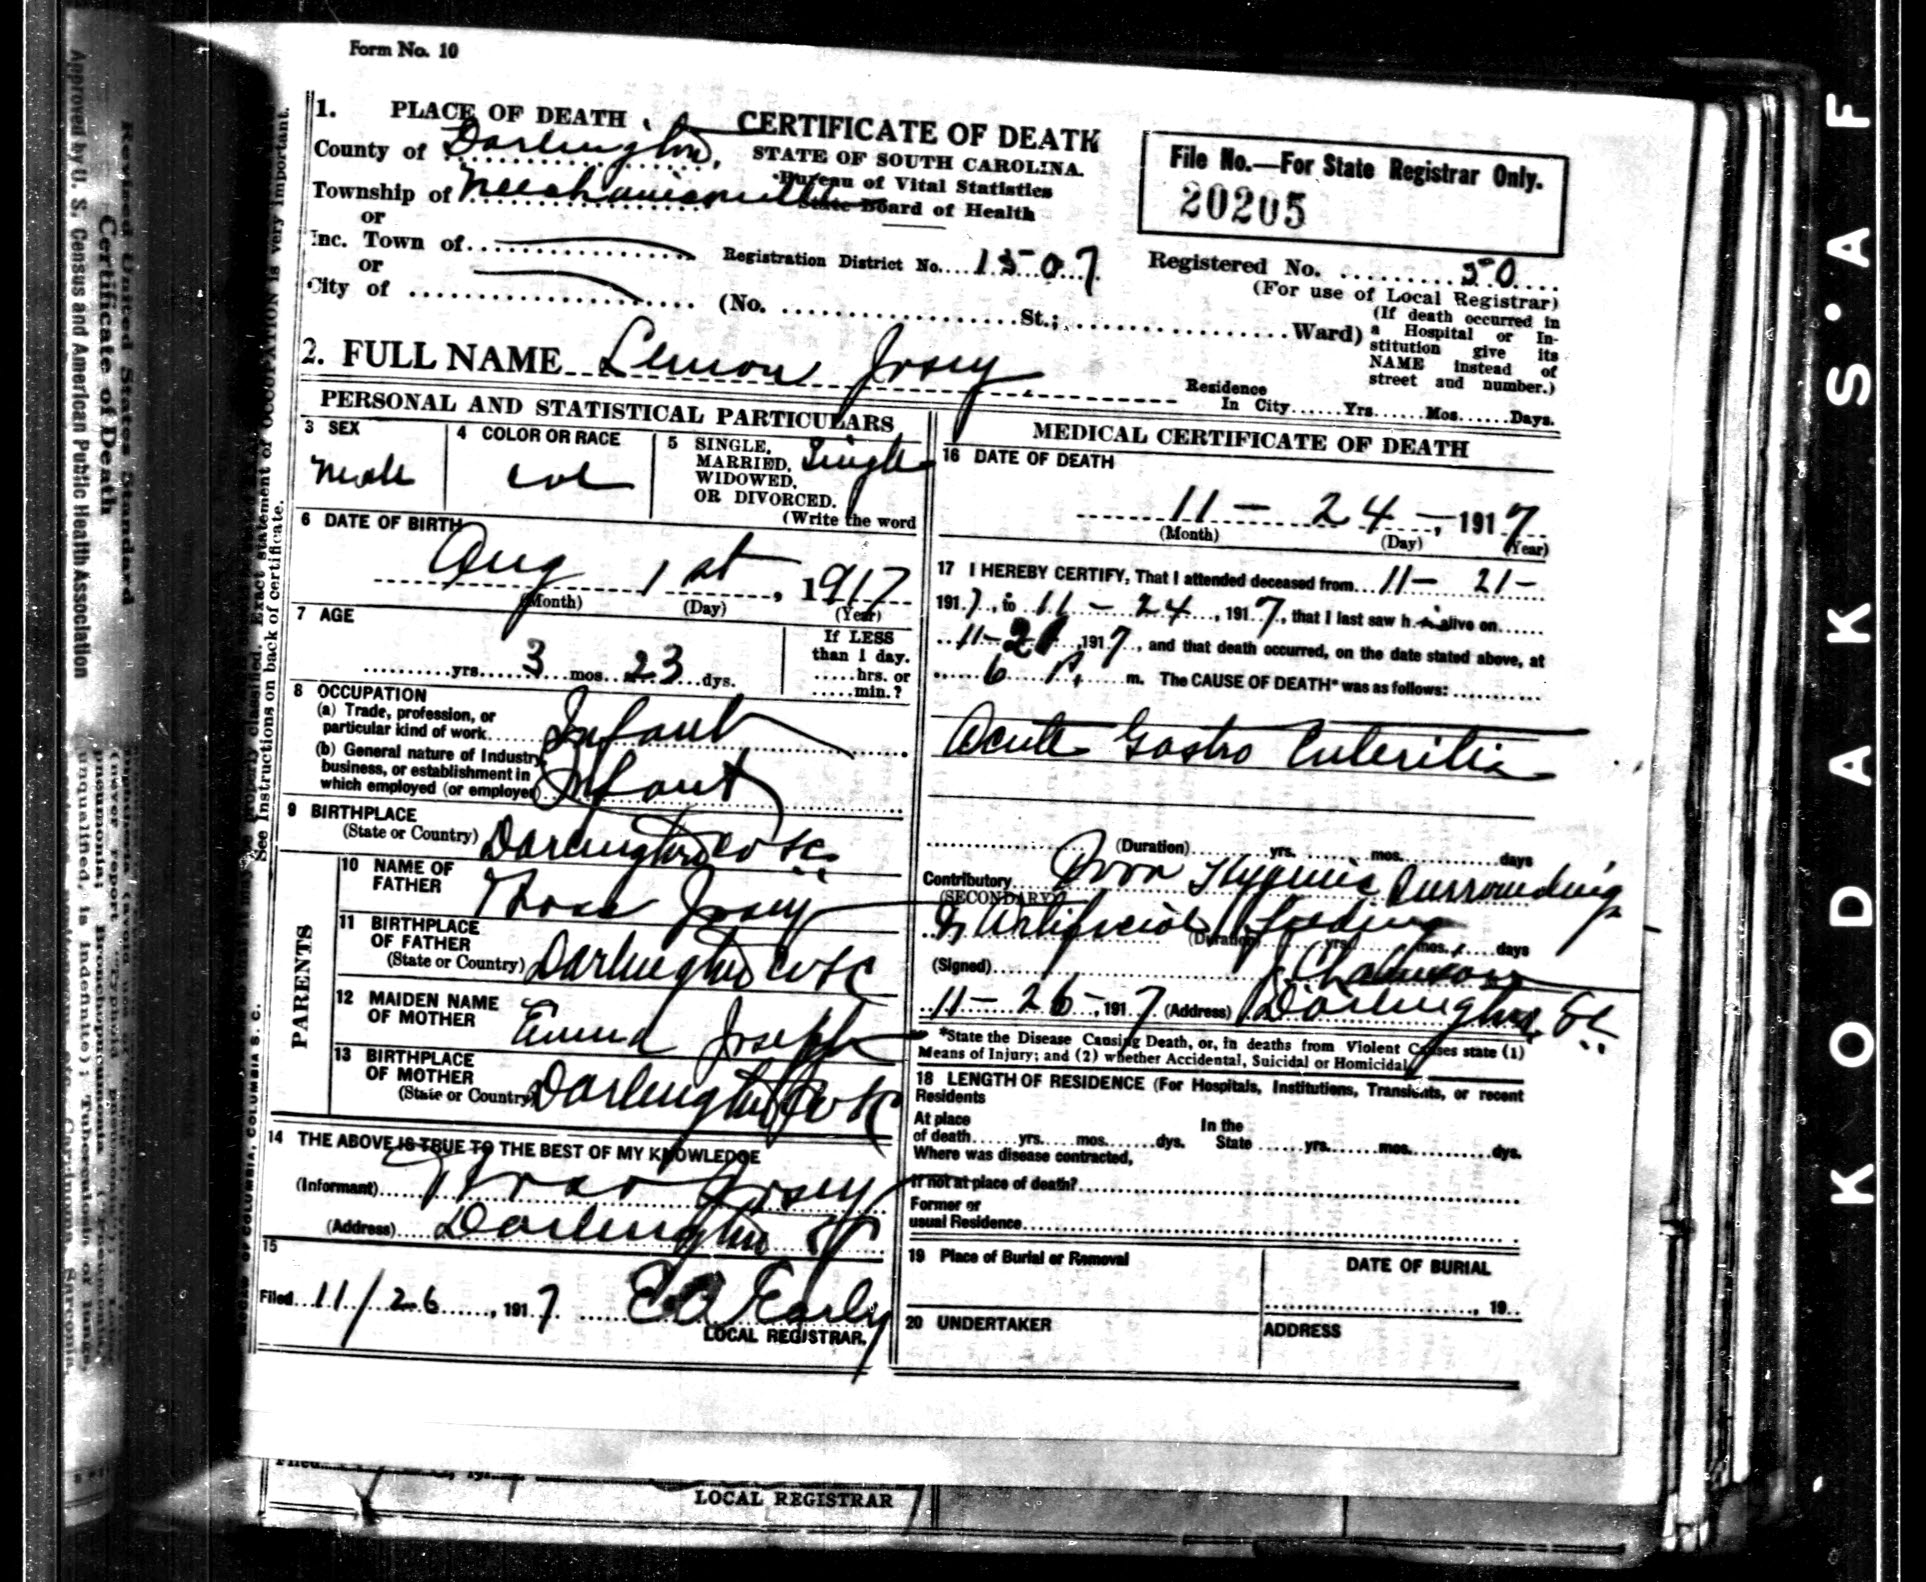 Form No. 10
1. PLACE OF DEATH
CERTIFICATE OF DEATH
County of Darlington,
STATE OF SOUTH CAROLINA.
Township of Mechanicsville
Bureau of Vital Statistics
State Board of Health
File No.—For State Registrar Only.
20205
or
Inc. Town of
Registration District No. 1507.
Registered No. 50
(For use of Local Registrar)
or
City of
(No. St.; Ward)
(If death occurred in
a Hospital or In-
stitution give its
NAME instead of
street and number.)
2. FULL NAME Lemon Josey
Residence
In City Yrs. Mos. Days.
PERSONAL AND STATISTICAL PARTICULARS
3 SEX
Male
4 COLOR OR RACE
Col
5 SINGLE,
MARRIED,
WIDOWED,
OR DIVORCED.
(Write the word
Single
6 DATE OF BIRTH
Aug 1st, 1917
(Month) (Day) (Year)
7 AGE
yrs. 3 mos. 23 dys.
If LESS
than 1 day.
hrs. or
min.?
8 OCCUPATION
(a) Trade, profession, or
particular kind of work Infant
(b) General nature of Industry,
business, or establishment in
which employed (or employer) Infant
9 BIRTHPLACE
(State or Country) Darlington Co SC
PARENTS
10 NAME OF
FATHER
Thos Josey
11 BIRTHPLACE
OF FATHER
(State or Country) Darlington Co SC
12 MAIDEN NAME
OF MOTHER
Emma Joseph
13 BIRTHPLACE
OF MOTHER
(State or Country) Darlington Co SC
14 THE ABOVE IS TRUE TO THE BEST OF MY KNOWLEDGE
(Informant) Thos Josey
(Address) Darlington SC
15
Filed 11/26, 1917 E A Early
LOCAL REGISTRAR.
MEDICAL CERTIFICATE OF DEATH
16 DATE OF DEATH
11 – 24 –, 1917
(Month) (Day) (Year)
17 I HEREBY CERTIFY, That I attended deceased from 11 – 21 –
1917, to 11 – 24, 1917, that I last saw h alive on
11–21, 1917, and that death occurred, on the date stated above, at
6 P. m. The CAUSE OF DEATH* was as follows:
Acute Gastro Enteritis
(Duration) yrs. mos. days
Contributory Poor Hygienic Surroundings
(SECONDARY)
Artificial feeding
(Duration) yrs. mos. days
(Signed)
11 – 26 –, 1917 (Address) Darlington, SC
*State the Disease Causing Death, or, in deaths from Violent Causes state (1)
Means of Injury; and (2) whether Accidental, Suicidal or Homicidal
18 LENGTH OF RESIDENCE (For Hospitals, Institutions, Transients, or recent
Residents
At place
of death yrs. mos. dys.
In the
State yrs. mos. dys.
Where was disease contracted,
If not at place of death?
Former or
usual Residence
19 Place of Burial or Removal
DATE OF BURIAL
, 19
20 UNDERTAKER
ADDRESS
LOCAL REGISTRAR
Revised United States Standard
Certificate of Death
Approved by U. S. Census and American Public Health Association
See Instructions on back of certificate.
KODAK SAF